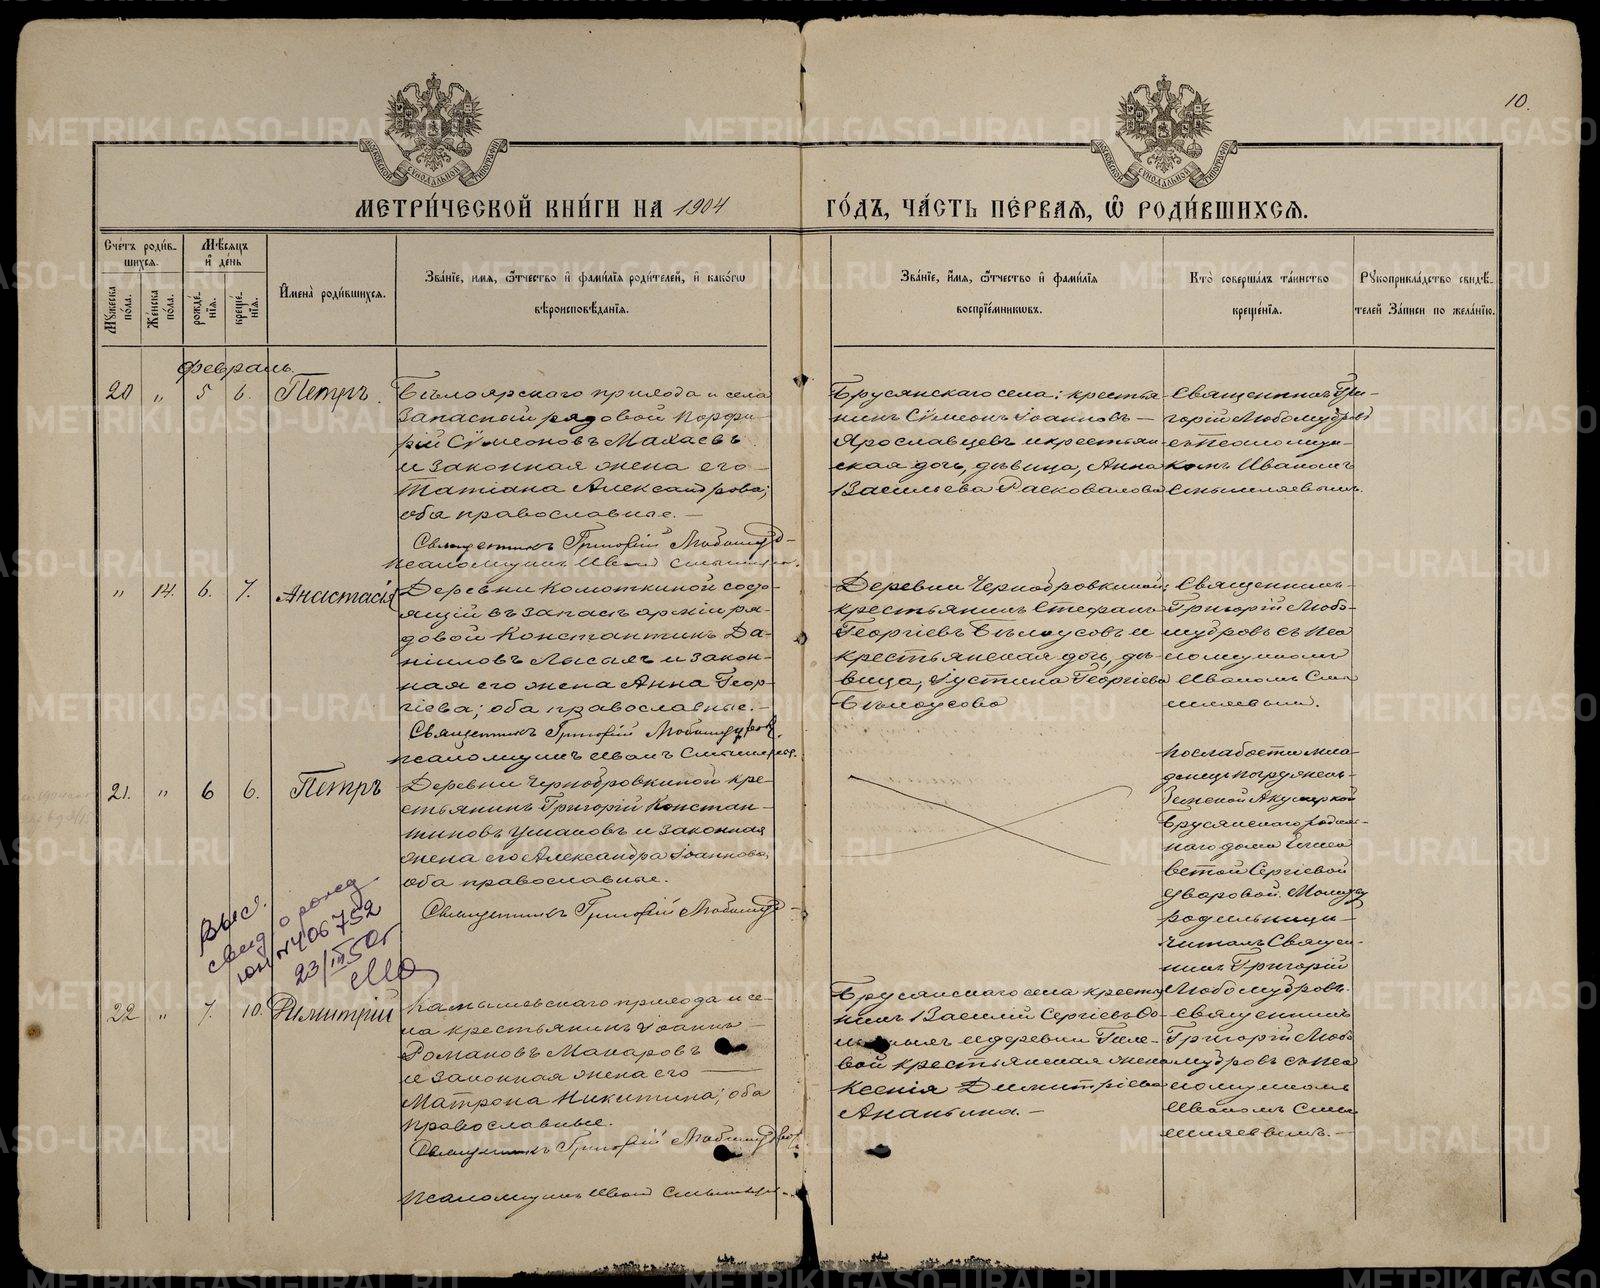 10.
МЕТРИ́ЧЕСКОЙ КНИ́ГИ НА 1904 ГО́ДЪ, ЧА́СТЬ ПЕ́РВАѦ, Ѿ РОДИ́ВШИХСѦ.
Сче́тъ роди́в-
шихсѧ.
Мꙋжеска по́ла.
Же́нска по́ла.
Мѣ́сѧцъ и҆ де́нь
рожде́нїѧ.
креще́нїѧ.
И҆мена̀ роди́вшихсѧ.
Зва́нїе, и҆мѧ, ѻ҆́тчество и҆ фами́лїѧ роди́телей, и҆ како́гѡ
вѣроисповѣ́данїѧ.
Зва́нїе, и҆́мѧ, ѻ҆́тчество и҆ фами́лїѧ
воспрїе́мникѡвъ.
Кто̀ соверша́лъ та́инство
креще́нїѧ.
Рꙋкоприкла́дство свидѣ́-
телей за́писи по жела́нїю.
Февраль.
20 " 5 6. Петръ.
Бѣлоярскаго прихода и села
запасный рядовой Порфи-
рій Сѵмеоновъ Махаевъ
и законная жена его
Татіана Александрова;
оба православные.—
Священникъ Григорій Любомуд-
Псаломщикъ Иван
Брусянскаго села: крестья-
нинъ Сѵмеонъ Іоанновъ—
Ярославцевъ и крестьян-
ская дочь, дѣвица, Анна
Васильева Расковалова
Священникъ Гри-
горій Любомудровъ
съ псаломщи-
комъ Иваномъ
Смышляевымъ.
" 14. 6. 7. Анастасія
Деревни Колюткиной состо-
ящій въ запасѣ арміи ря-
довой Константинъ Да-
ніиловъ Лысыхъ и закон-
ная его жена Анна Геор-
гіева; оба православные.—
Священникъ Григорій Любомудров
псаломщикъ Иванъ
Деревни Чернобровкиной;
крестьянинъ Стефанъ
Георгіевъ Бѣлоусовъ и
крестьянская дочь, дѣ-
вица, Іустина Георгіева
Бѣлоусова
Священникъ
Григорій Любо-
мудровъ съ пса-
ломщикомъ
Иваномъ Смы-
шляевым.
21. " 6 6. Петръ
Деревни Чернобровкиной кре-
стьянинъ Григорій Констан-
тиновъ Ушаковъ и законная
жена его Александра Іоаннова,
оба православные.
Священникъ Григорій Любомуд-
По слабости мла-
денецъ погруженъ
Земской Акушеркой
Брусянскаго родиль-
наго дома Елиса-
ветой Сергіевой
Уваровой. Молитву
родильницѣ
читалъ Священ-
никъ Григорій
Любомудровъ.
Выс.
свид. о рожд.
юн № 406752
23/III 50г
22 " 7. 10. Димитрій
Камышевскаго прихода и се-
ла крестьянинъ Іоаннъ
Романовъ Макаровъ
и законная жена его
Матрона Никитина; оба
православные.
Священникъ Григорій Любомудров
Псаломщикъ Иван
Брусянскаго села крестья-
нинъ Василій Сергіевъ
и деревни Галя-
вой крестьянская жена
Ксенія Димитріева
Ананьина.—
Священникъ
Григорій Любо-
мудровъ съ пса-
ломщикомъ
Иваномъ Смы-
шляевымъ.—
METRIKI.GASO-URAL.RU